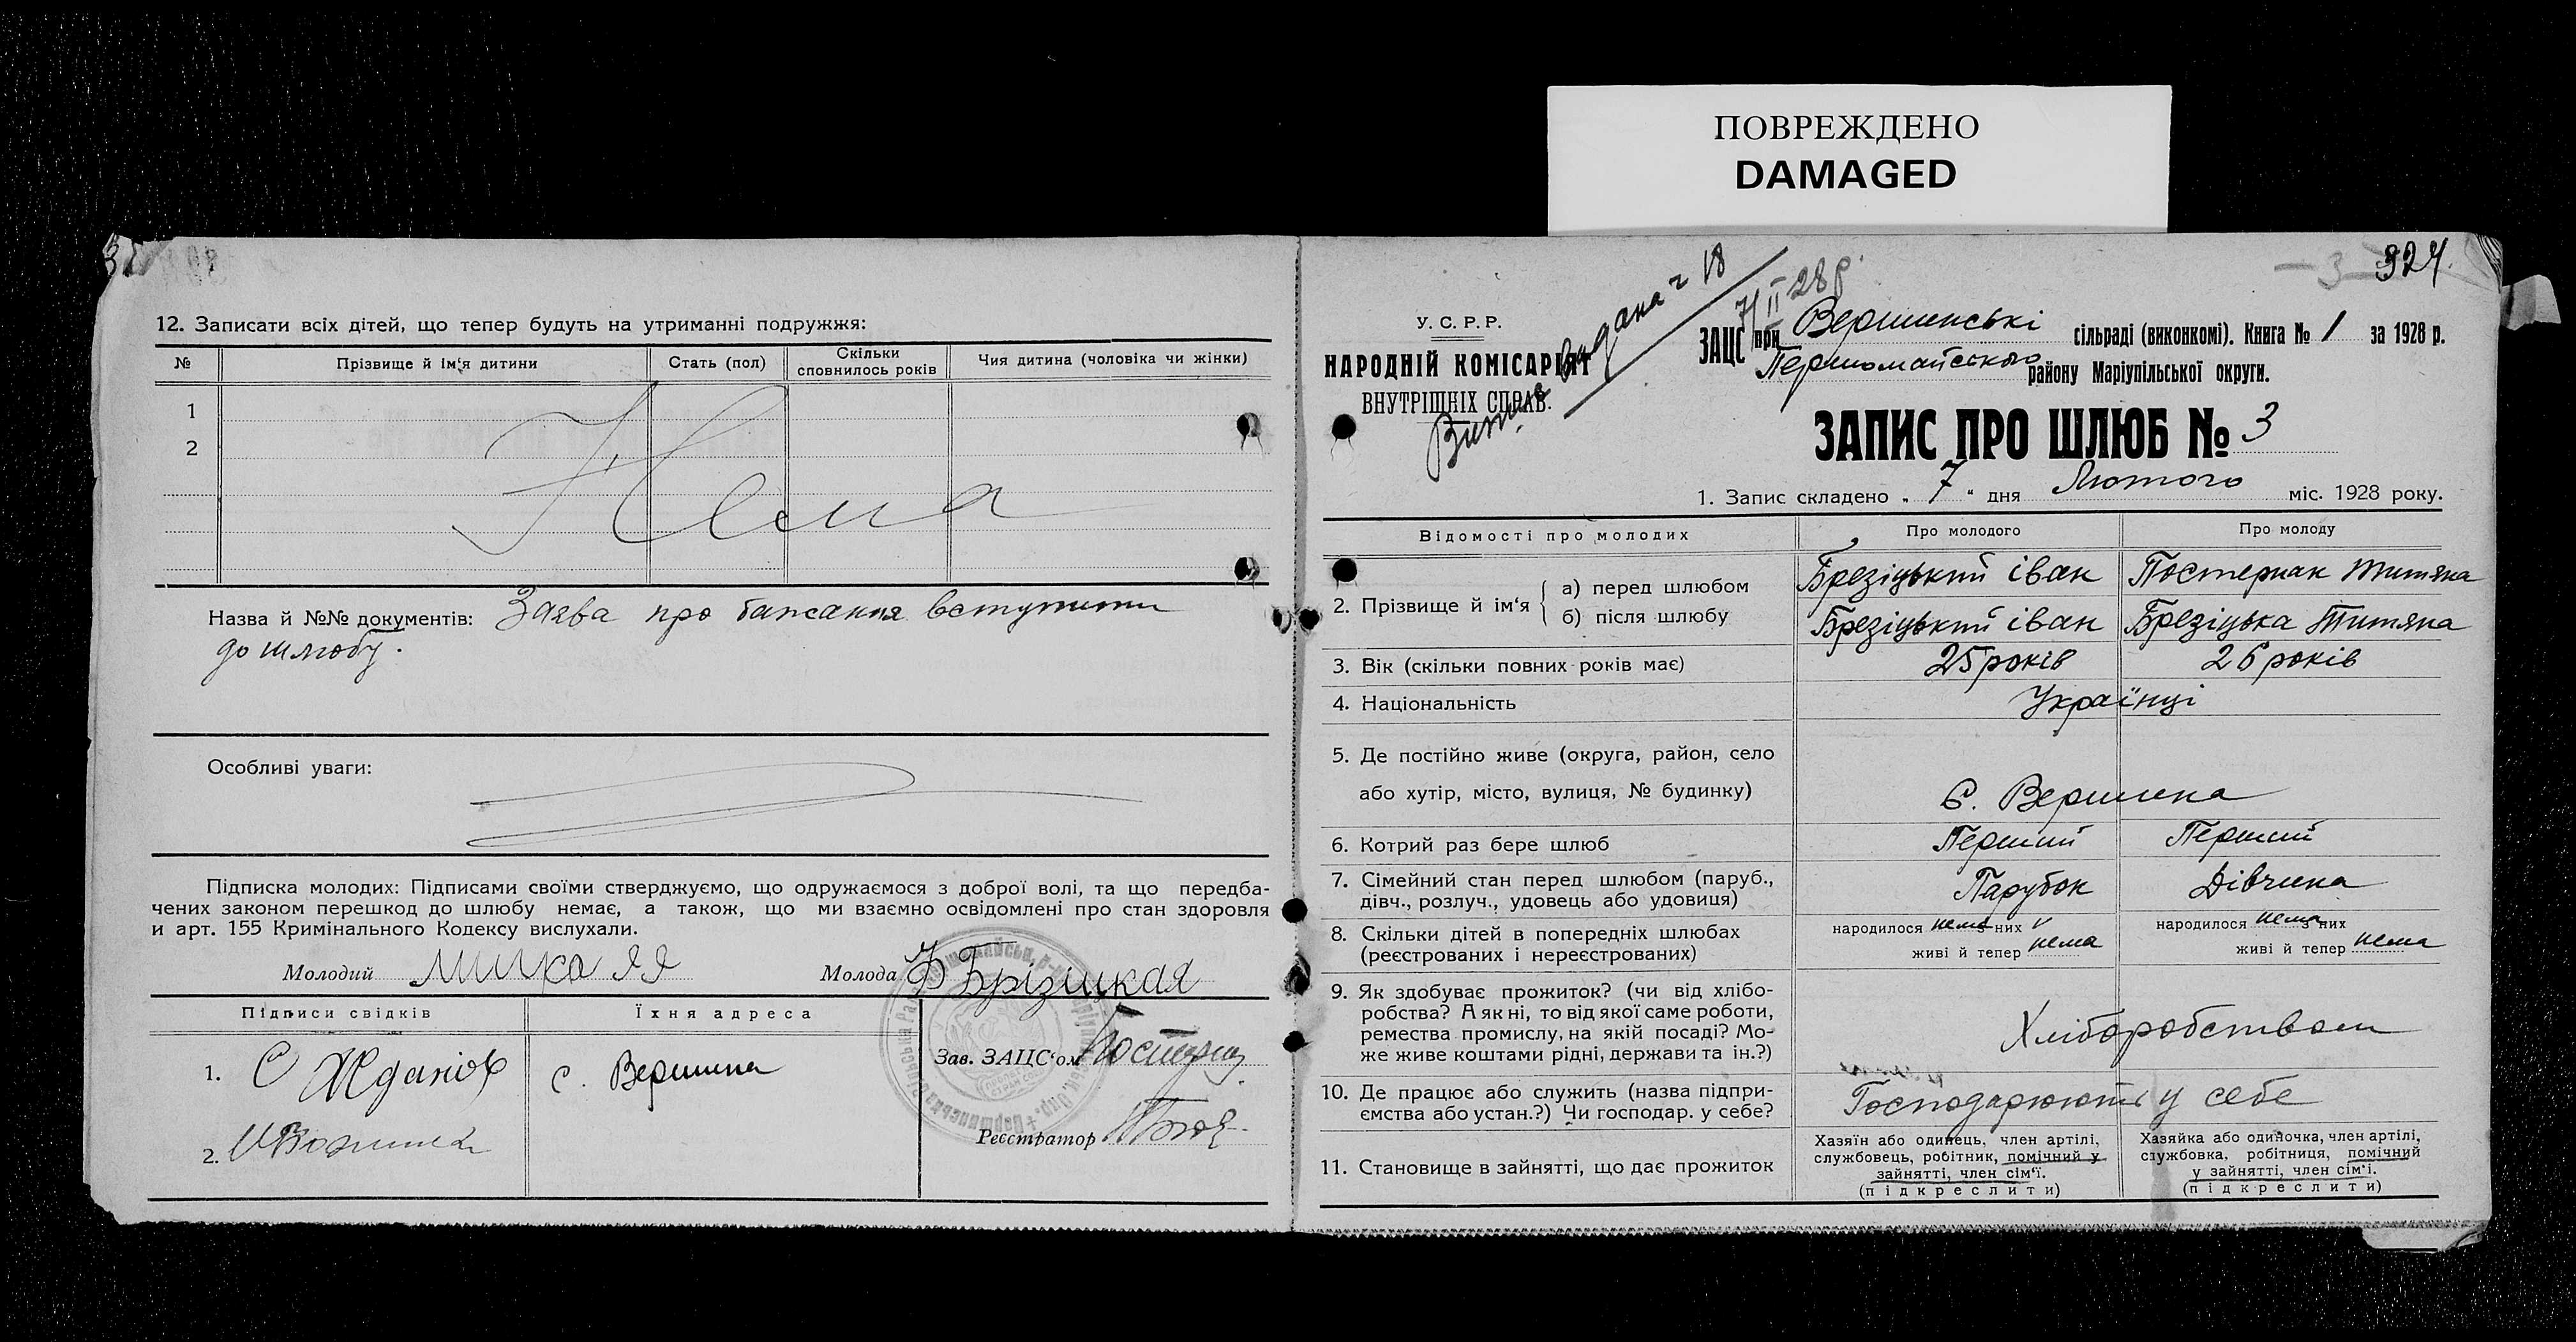 ПОВРЕЖДЕНО
DAMAGED
12. Записати всіх дітей, що тепер будуть на утриманні подружжя:
№ Прізвище й ім'я дитини Стать (пол) Скільки сповнилось років Чия дитина (чоловіка чи жінки)
1
2
Нема
Назва й №№ документів: Заява про бажання вступити
до шлюбу.
Особливі уваги:
Підписка молодих: Підписами своїми стверджуємо, що одружаємося з доброї волі, та що передба-
чених законом перешкод до шлюбу немає, а також, що ми взаємно освідомлені про стан здоровля
и арт. 155 Кримінального Кодексу вислухали.
Молодий Молода Брізицкая
Підписи свідків Їхня адреса
1. С Жданов с. Вершина
Зав. ЗАЦС'ом
2.
Реєстратор
324.
3
У. С. Р. Р.
НАРОДНІЙ КОМІСАРІЯТ
ВНУТРІШНІХ СПРАВ.
Випись видана ч 18
7/II 28 р.
ЗАЦС при Вершинські сільраді (виконкомі). Книга № 1 за 1928 р.
Першомайського району Маріупільської округи.
ЗАПИС ПРО ШЛЮБ № 3
1. Запис складено „ 7 " дня Лютого міс. 1928 року.
Відомості про молодих Про молодого Про молоду
2. Прізвище й ім'я
а) перед шлюбом Брезіцький іван Постернак Титяна
б) після шлюбу Брезіцький іван Брезіцька Титяна
3. Вік (скільки повних років має) 25 років 26 років
4. Національність Українці
5. Де постійно живе (округа, район, село
або хутір, місто, вулиця, № будинку) С. Вершина
6. Котрий раз бере шлюб Перший Перший
7. Сімейний стан перед шлюбом (паруб.,
дівч., розлуч., удовець або удовиця) Парубок Дівчина
8. Скільки дітей в попередніх шлюбах народилося нема з них народилося нема з них
(реєстрованих і нереєстрованих) живі й тепер нема живі й тепер нема
9. Як здобуває прожиток? (чи від хлібо-
робства? А як ні, то від якої саме роботи,
ремества промислу, на якій посаді? Мо-
же живе коштами рідні, держави та ін.?)
Хліборобством
10. Де працює або служить (назва підпри-
ємства або устан.?) Чи господар. у себе?
Господарюють у себе
11. Становище в зайнятті, що дає прожиток
Хазяїн або одинець, член артілі,
службовець, робітник, помічний у
зайнятті, член сім'ї.
(підкреслити)
Хазяйка або одиночка, член артілі,
службовка, робітниця, помічний
у зайнятті, член сім'ї.
(підкреслити)